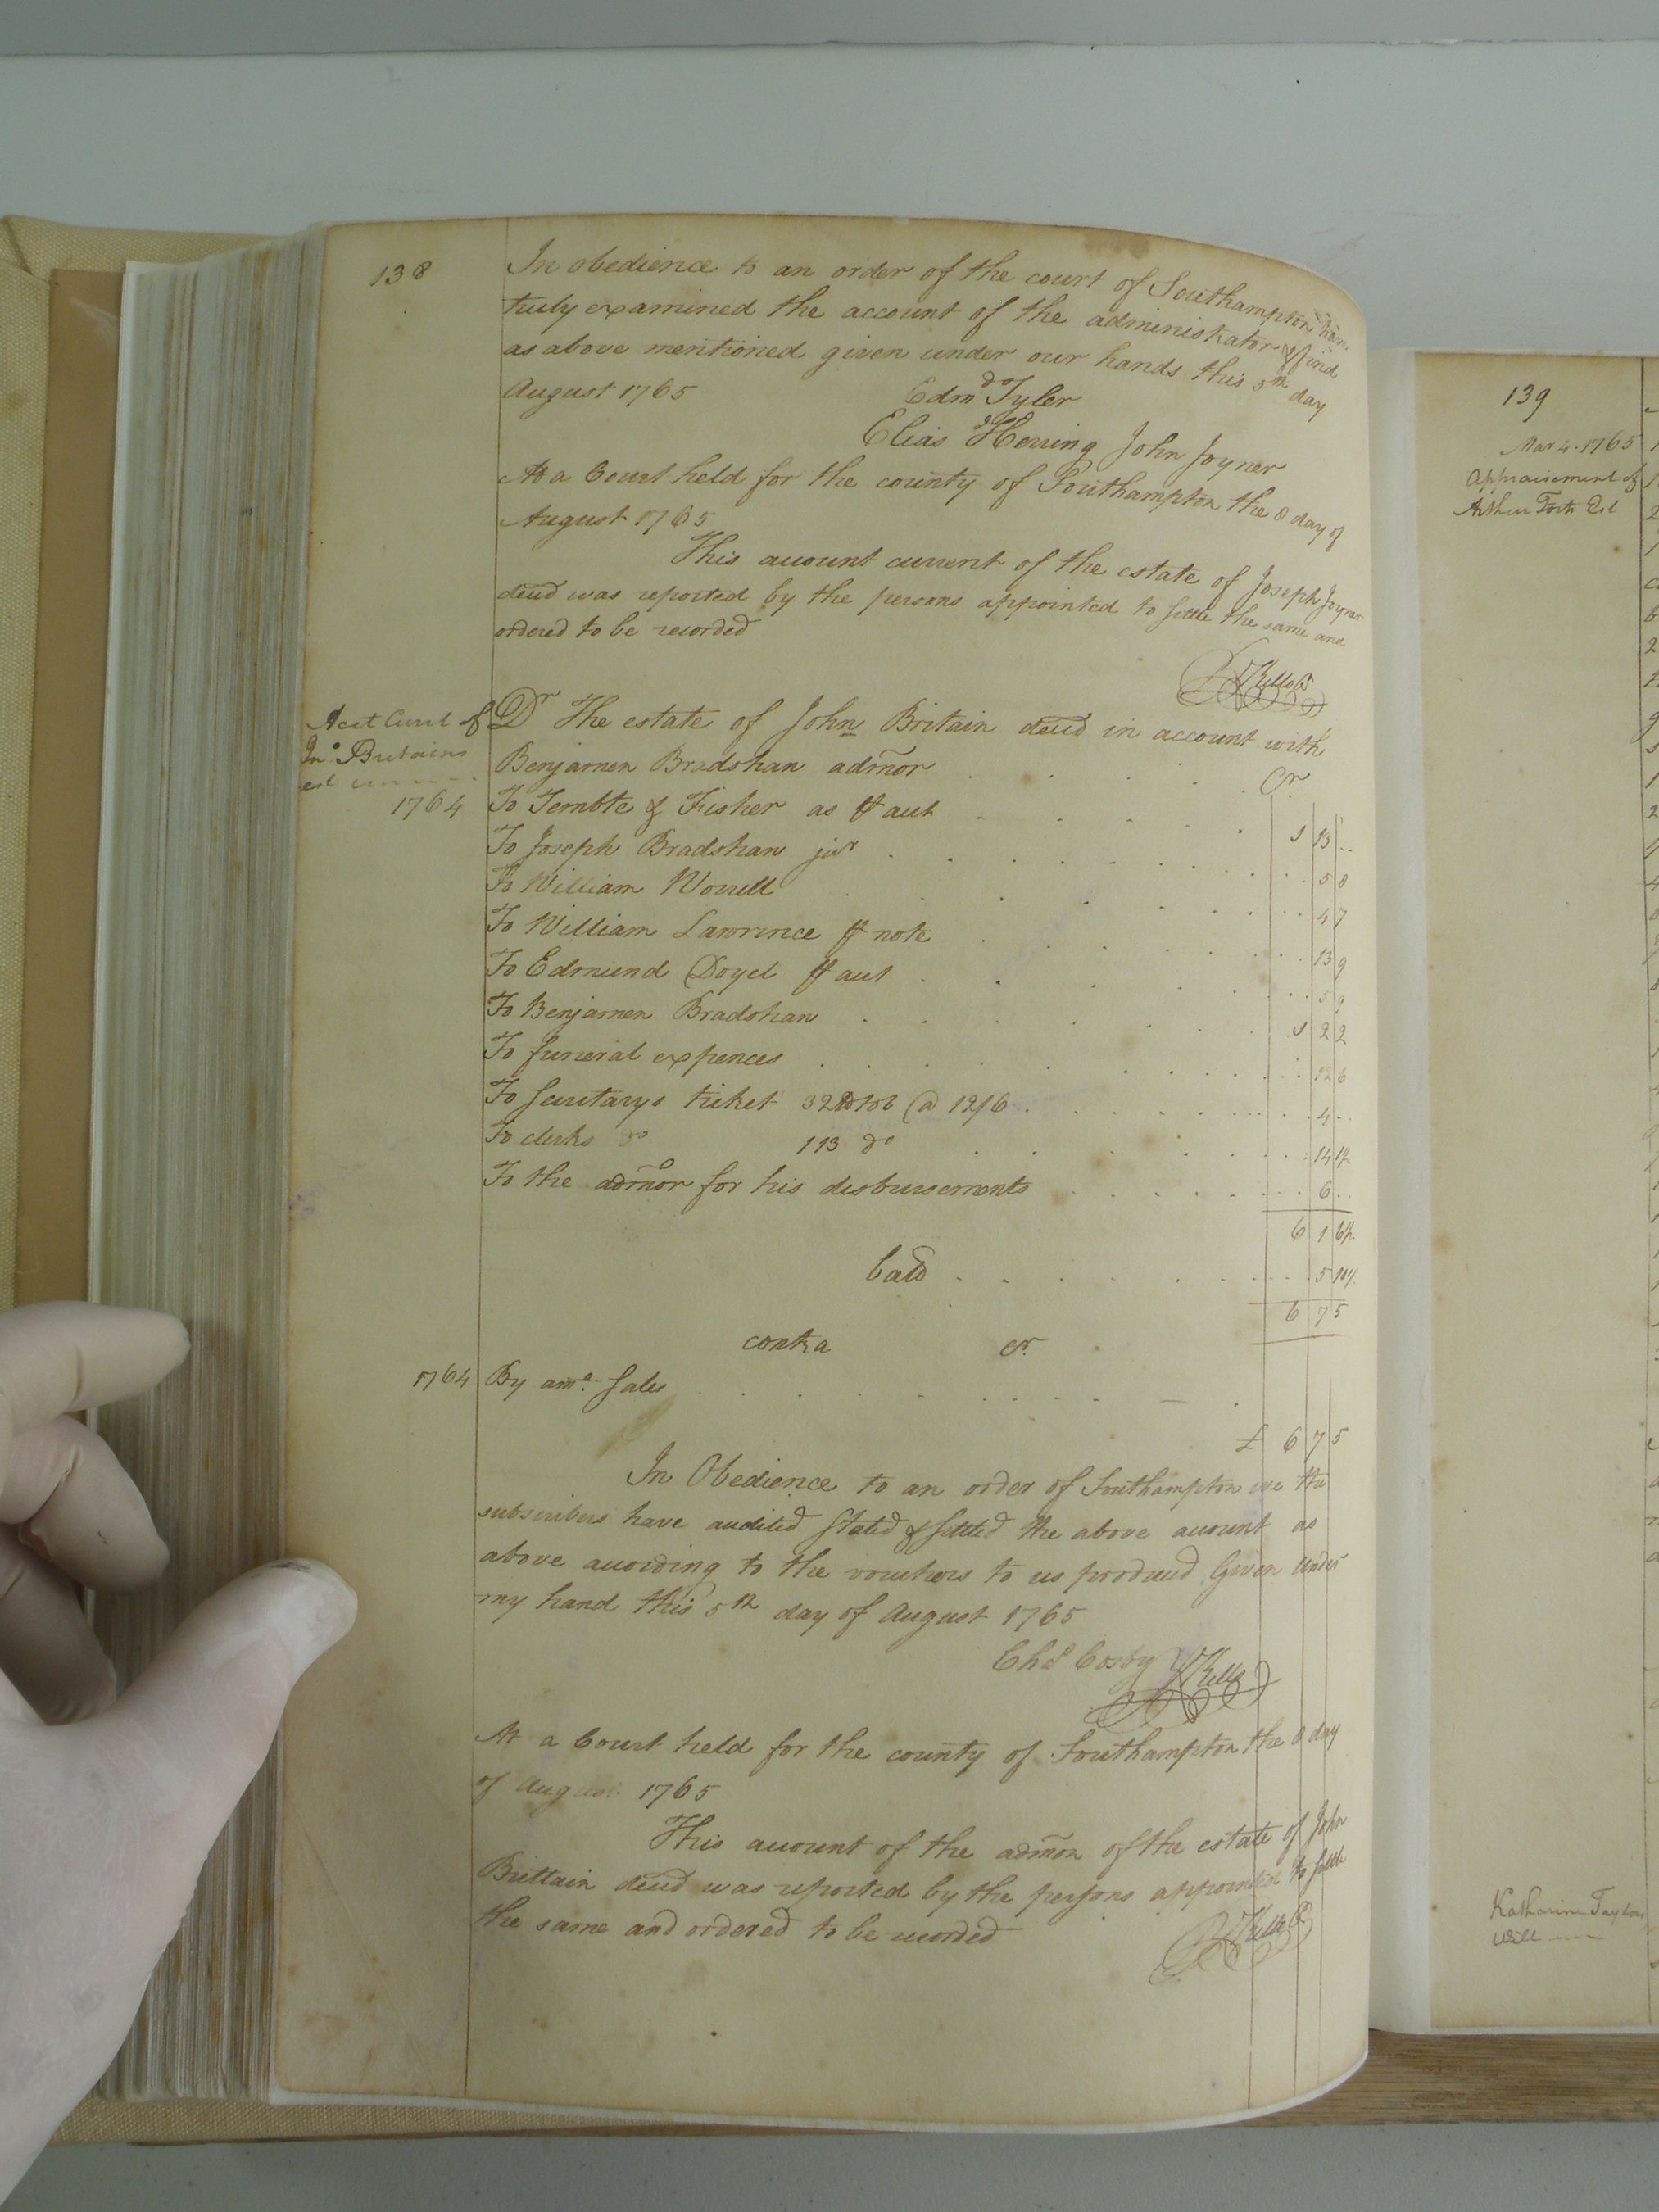 138
In obedience to an order of the court of Southampton have
truly examined the account of the administrator & find
as above mentioned given under our hands this 5th day
August 1765
Edmd Tyler
Elias Herring John Joyner
At a Court held for the county of Southampton the 8 day of
August 1765
This account current of the estate of Joseph Joyner
decd was reported by the persons appointed to settle the same and
ordered to be recorded
RKello Cr
Acct Curt of
Jno Britains
est
Dr The estate of John Britain decd in account with
Benjamen Bradshan admor Cr
1764 To Temble & Fisher as # act 1 13 ..
To Joseph Bradshan junr 5 8
To William Worrell 4 7
To William Lawrence # note 13 9
To Edmund Doyel # act 5 9
To Benjamen Bradshan 1 2 2
To funeral expences 12 6
To Secretarys ticket 32 lb tob @ 12/6 4 ..
To clerks do 113 do 14 1½
To the admor for his disbursements 6 ..
6 1 6½
Bald 5 10½
6 7 5
contra cr
1764 By amt Sales
£ 6 7 5
In Obedience to an order of Southampton we the
subscribers have audited Stated & Settled the above account as
above according to the vouchers to us produced Given under
my hand this 5th day of August 1765
Chas Cosby RKello
At a Court held for the county of Southampton the 8 day
of August 1765
This account of the admon of the estate of John
Brittain decd was reported by the persons appointed to settle
the same and ordered to be recorded
RKello Cr
139
Mar 4. 1765
Appraisement of
Arthur Fort Est
Katharine Taylors
Will